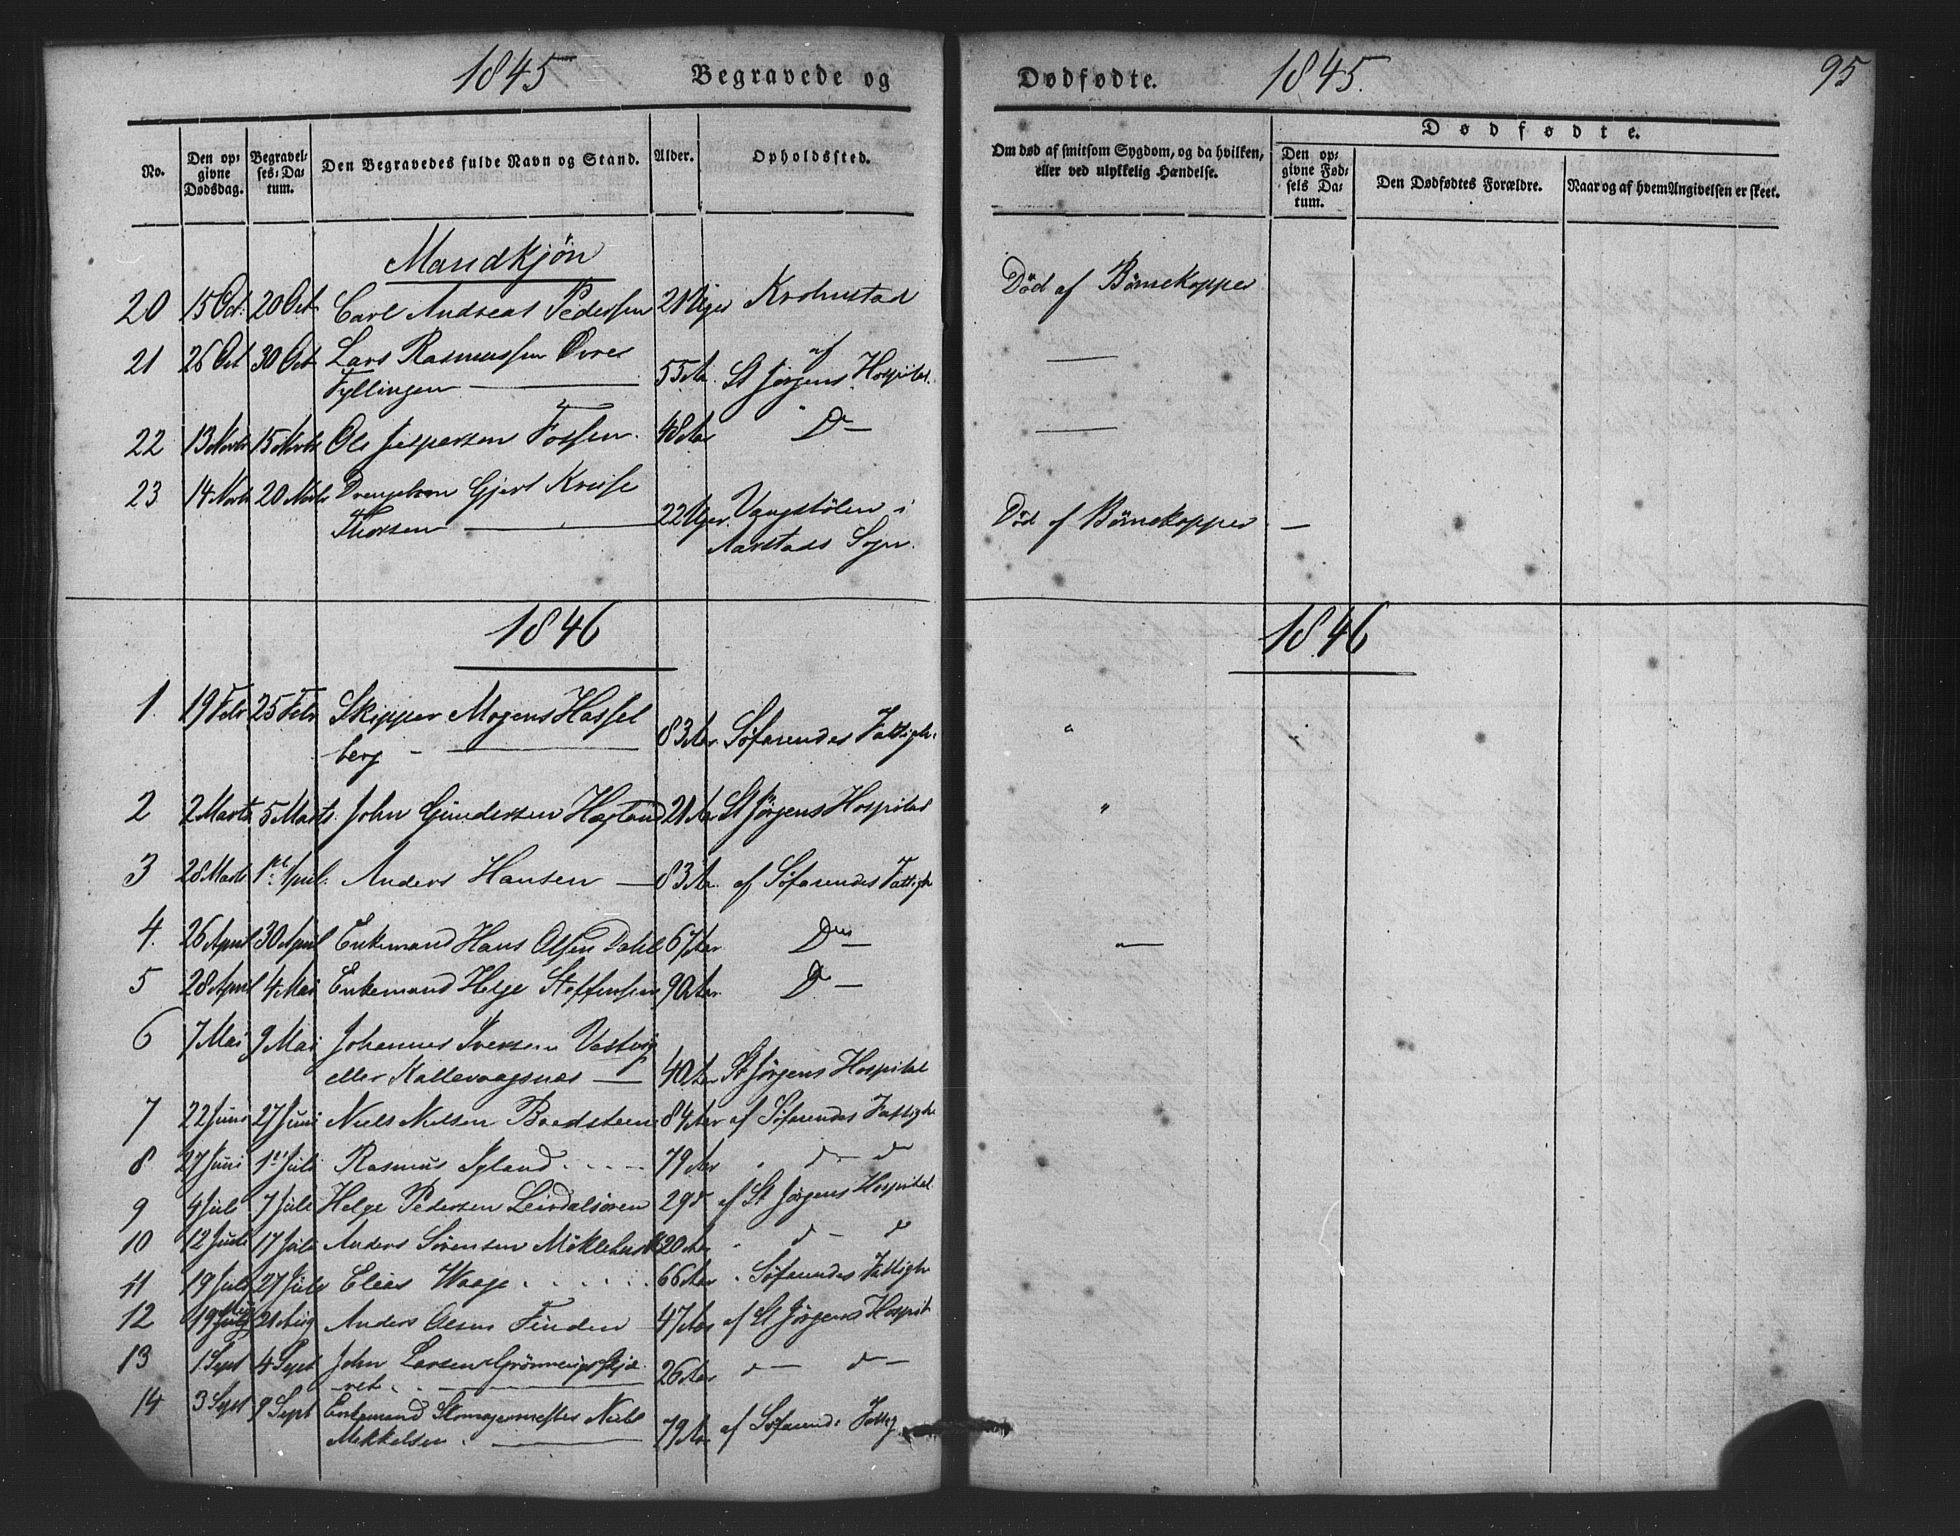 1845 Begravede og Dødfødte. 1845. 95
No. Den opgivne Dødsdag. Begravelses-Datum. Den Begravedes fulde Navn og Stand. Alder. Opholdssted. Om død af smitsom Sygdom, og da hvilken, eller ved ulykkelig Hændelse. Dødfødte. Den opgivne Fødsels Datum. Den Dødfødtes Forældre. Naar og af hvem Angivelsen er skeet.
Mandkjøn
20 15 Oct. 20 Oct. Carl Andreas Pedersen 21 Uger Krohnstad Død af Børnekopper
21 26 Oct 30 Oct Lars Rasmussen Øvre
Fyllingen — 55 Aar. af St Jørgens Hospital. —
22 13 Novbr 15 Novbr Ole Jespersen Fossen. 48 Aar Do — —
23 14 Novbr 20 Novbr Drengebarn Gjert Kruse
Thorsen — 22 Uger. Vaagstølen i
Aarstads Sogn. Død af Børnekopper —
1846 1846
1. 19 Febr 25 Febr Skipper Mogens Hassel
berg — 83 Aar Søfarendes Fattigh. "
2 2 Marts 5 Marts. John Gundersen Hægland 21 Aar St Jørgens Hospital "
3 28 Marts 1ste April. Anders Hansen — 83 Aar. af Søfarendes Fattigh
4. 26 April 30 April Enkemand Hans Olsen Dahl 67 Aar Do — "—
5 28 April 4 Mai Enkemand Helge Steffensen 90 Aar. Do —
6 7 Mai 9 Mai Johannes Iversen Vestvig
eller Kallevaagsnæs — 40 Aar St Jørgens Hospital
7 22 Juni 27 Juni Niels Nielsen Bredsteen 84 Aar af Søfarendes Fattigh
8 27 Juni 1ste Juli Rasmus Syland . . . . 79 Aar " do — do
9 4 Juli 7 Juli Helge Pedersen Leirdalsøren 29 af St Jørgens Hospital.
10 12 Juli 17 Juli Anders Sørensen Møklebust 20 Aar " do — do
11 19 Juli 27 Juli Elias Waage . . . . . 66 Aar " Søfarendes Fattigh
12 19 Aug 21 Aug Anders Olsen Finden 47 Aar af St Jørgens Hospit
13 1 Sept 4 Sept John Larsen Grønnevigs Skjæ
ret. — 26 Aar do — do —
14 3 Sept 9 Sept Enkemand Skomagermester Niels
Mikkelsen . — 79 Aar af Søfarende Fattig